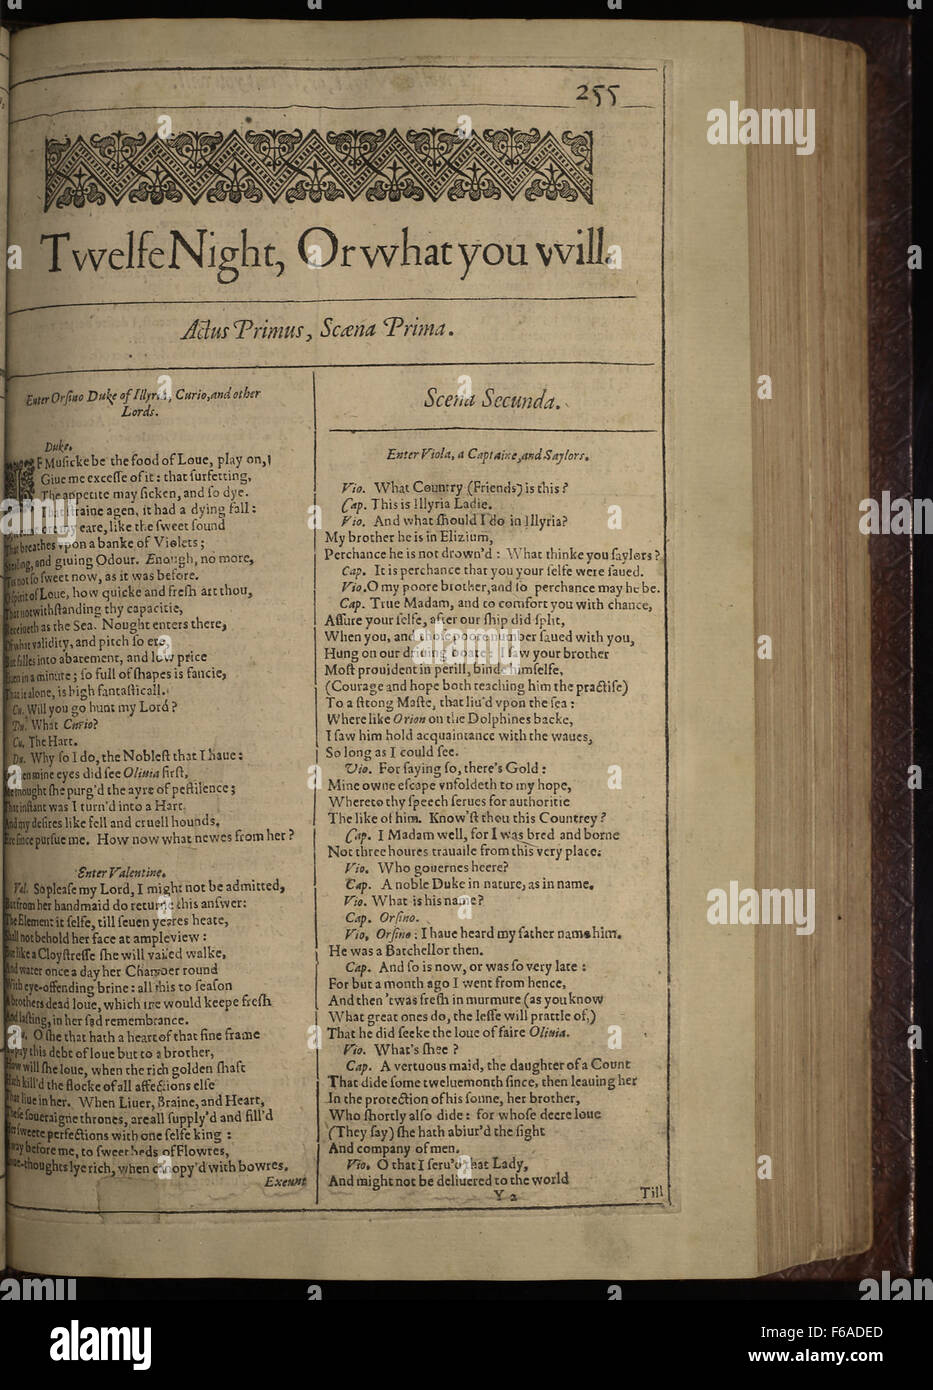 255
Twelfe Night, Or what you will.
Actus Primus, Scæna Prima.
Enter Orsino Duke of Illyria, Curio, and other
Lords.
Duke.
IF Musicke be the food of Loue, play on,
Giue me excesse of it: that surfetting,
The appetite may sicken, and so dye.
That straine agen, it had a dying fall:
ore my eare, like the sweet sound
That breathes vpon a banke of Violets;
Stealing, and giuing Odour. Enough, no more,
Tis not so sweet now, as it was before.
O spirit of Loue, how quicke and fresh art thou,
That notwithstanding thy capacitie,
Receiueth as the Sea. Nought enters there,
Of what validity, and pitch so ere,
But falles into abatement, and low price
Euen in a minute; so full of shapes is fancie,
That it alone, is high fantasticall.
Cu. Will you go hunt my Lord?
Du. What Curio?
Cu. The Hart.
Du. Why so I do, the Noblest that I haue:
when mine eyes did see Oliuia first,
Me thought she purg'd the ayre of pestilence;
That instant was I turn'd into a Hart,
And my desires like fell and cruell hounds,
Ere since pursue me. How now what newes from her?
Enter Valentine.
Val. So please my Lord, I might not be admitted,
But from her handmaid do returne this answer:
The Element it selfe, till seuen yeares heate,
Shall not behold her face at ample view:
But like a Cloystresse she will vailed walke,
And water once a day her Chamber round
With eye-offending brine: all this to season
A brothers dead loue, which she would keepe fresh
And lasting, in her sad remembrance.
Du. O she that hath a heart of that fine frame
To pay this debt of loue but to a brother,
How will she loue, when the rich golden shaft
Hath kill'd the flocke of all affections else
That liue in her. When Liuer, Braine, and Heart,
These soueraigne thrones, are all supply'd and fill'd
Her sweete perfections with one selfe king:
Away before me, to sweet beds of Flowres,
Loue-thoughts lye rich, when canopy'd with bowres.
Exeunt
Scena Secunda.
Enter Viola, a Captaine, and Saylors.
Vio. What Country (Friends) is this?
Cap. This is Illyria Ladie.
Vio. And what should I do in Illyria?
My brother he is in Elizium,
Perchance he is not drown'd: What thinke you saylors?
Cap. It is perchance that you your selfe were saued.
Vio. O my poore brother, and so perchance may he be.
Cap. True Madam, and to comfort you with chance,
Assure your selfe, after our ship did split,
When you, and those poore number saued with you,
Hung on our driuing boate: I saw your brother
Most prouident in perill, binde himselfe,
(Courage and hope both teaching him the practise)
To a strong Maste, that liu'd vpon the sea:
Where like Orion on the Dolphines backe,
I saw him hold acquaintance with the waues,
So long as I could see.
Vio. For saying so, there's Gold:
Mine owne escape vnfoldeth to my hope,
Whereto thy speech serues for authoritie
The like of him. Know'st thou this Countrey?
Cap. I Madam well, for I was bred and borne
Not three houres trauaile from this very place:
Vio. Who gouernes heere?
Cap. A noble Duke in nature, as in name.
Vio. What is his name?
Cap. Orsino.
Vio. Orsino: I haue heard my father name him.
He was a Batchellor then.
Cap. And so is now, or was so very late:
For but a month ago I went from hence,
And then 'twas fresh in murmure (as you know
What great ones do, the lesse will prattle of,)
That he did seeke the loue of faire Oliuia.
Vio. What's shee?
Cap. A vertuous maid, the daughter of a Count
That dide some tweluemonth since, then leauing her
In the protection of his sonne, her brother,
Who shortly also dide: for whose deere loue
(They say) she hath abiur'd the sight
And company of men.
Vio. O that I seru'd that Lady,
And might not be deliuered to the world
Y 2
Till
alamy
alamy
alamy
alamy
Image ID: F6ADED
www.alamy.com